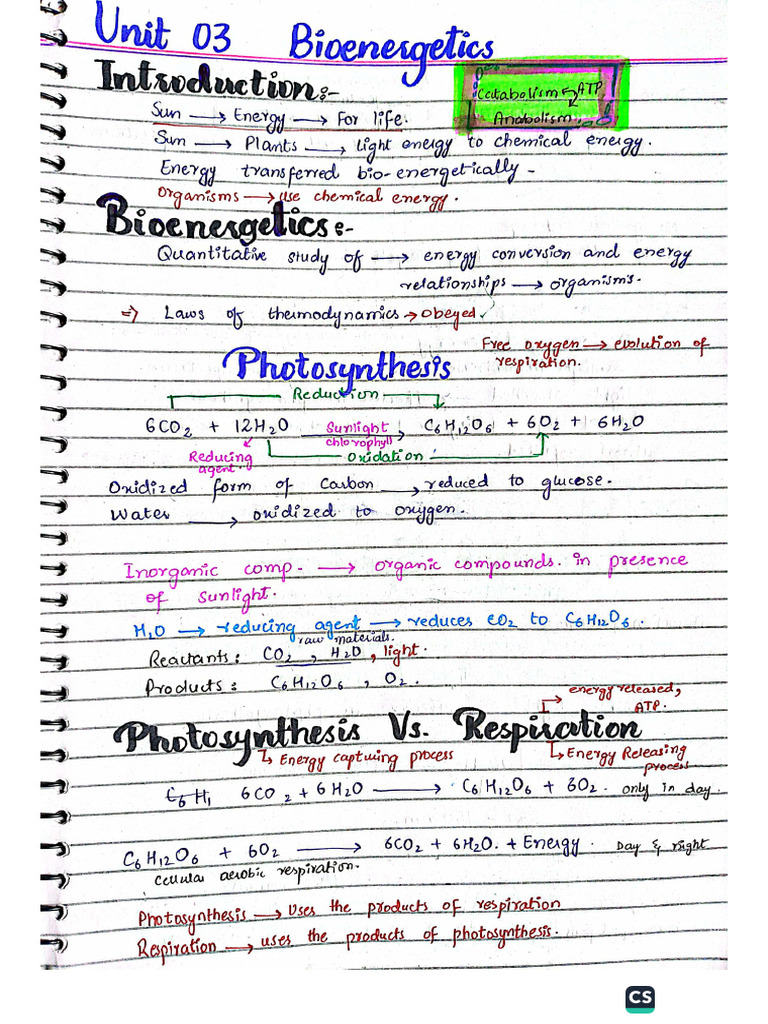 Unit 03 Bioenergetics
Introduction:-
Catabolism ATP
Anabolism
Sun → Energy → For life.
Sun → Plants → light energy to chemical energy.
Energy transferred bio-energetically -
Organisms → use chemical energy.
Bioenergetics:-
Quantitative study of → energy conversion and energy
relationships → organisms.
⇒ Laws of themodynamics → obeyed.
Free oxygen → evolution of
respiration.
Photosynthesis
Reduction
6CO2 + 12H2O Sunlight chlorophyll → C6H12O6 + 6O2 + 6H2O
Reducing
agent.
Oxidation
Oxidized form of Carbon → reduced to glucose.
Water → oxidized to oxygen.
Inorganic comp. → organic compounds. in presence
of sunlight.
H2O → reducing agent → reduces CO2 to C6H12O6.
raw materials.
Reactants: CO2, H2O, light.
Products: C6H12O6, O2.
energy released,
ATP.
Photosynthesis Vs. Respiration
↳ Energy capturing process
↳ Energy Releasing
process
C6H1 6CO2 + 6H2O → C6H12O6 + 6O2. only in day.
C6H12O6 + 6O2 → 6CO2 + 6H2O. + Energy. Day & night
cellular aerobic respiration.
Photosynthesis → Uses the products of respiration
Respiration → uses the products of photosynthesis.
CS